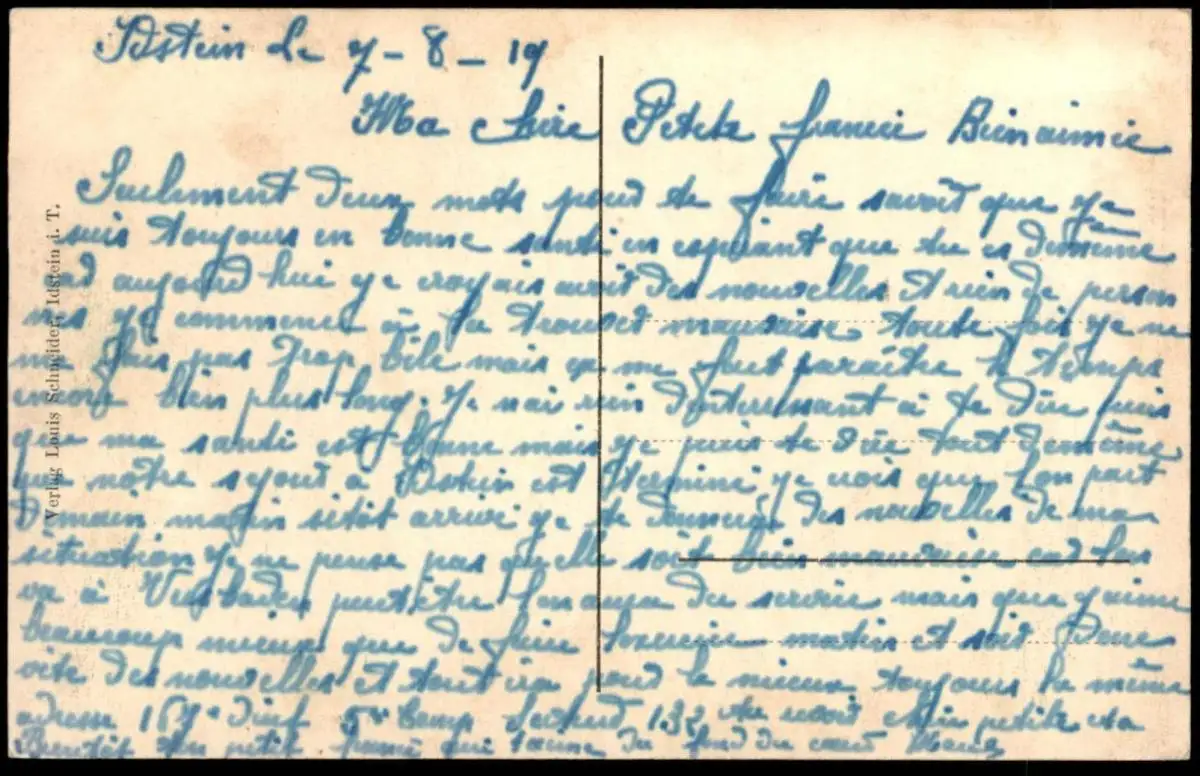 Idstein Le 7-8-19
Ma chère Petite francie Bienaimie
Seulement deux mots pour te faire savoir que je
suis toujours en bonne santé en espérant que tu es demême
car aujourd hui je croyais avoir des nouvelles et rien de person
nes je commence à la trouver mauvaise toute fois je ne
me fais pas trop bile mais ça me fait paraître le temps
encore bien plus long. Je nai rien dinteressant à te dire puis
que ma santé est bonne mais je puis te dire tout demême
que notre sejour à Idstein est terminé je crois que lon part
Demain matin sitôt arrivé je te donnerai des nouvelles de ma
situation je ne pense pas quelle soit bien mauvaise car lon
va à Viesbaden peutêtre lon aura du service mais que jaime
beaucoup mieux que de faire lexercice matin et soir Donc
vite des nouvelles et tout ira pour le mieux toujours la même
adresse 167e dinf 5e Comp Secteur 132 Au revoir chère petite et à
Bientôt ton petit qui taime du fond du coeur
Verlag Louis Schneider, Idstein i. T.